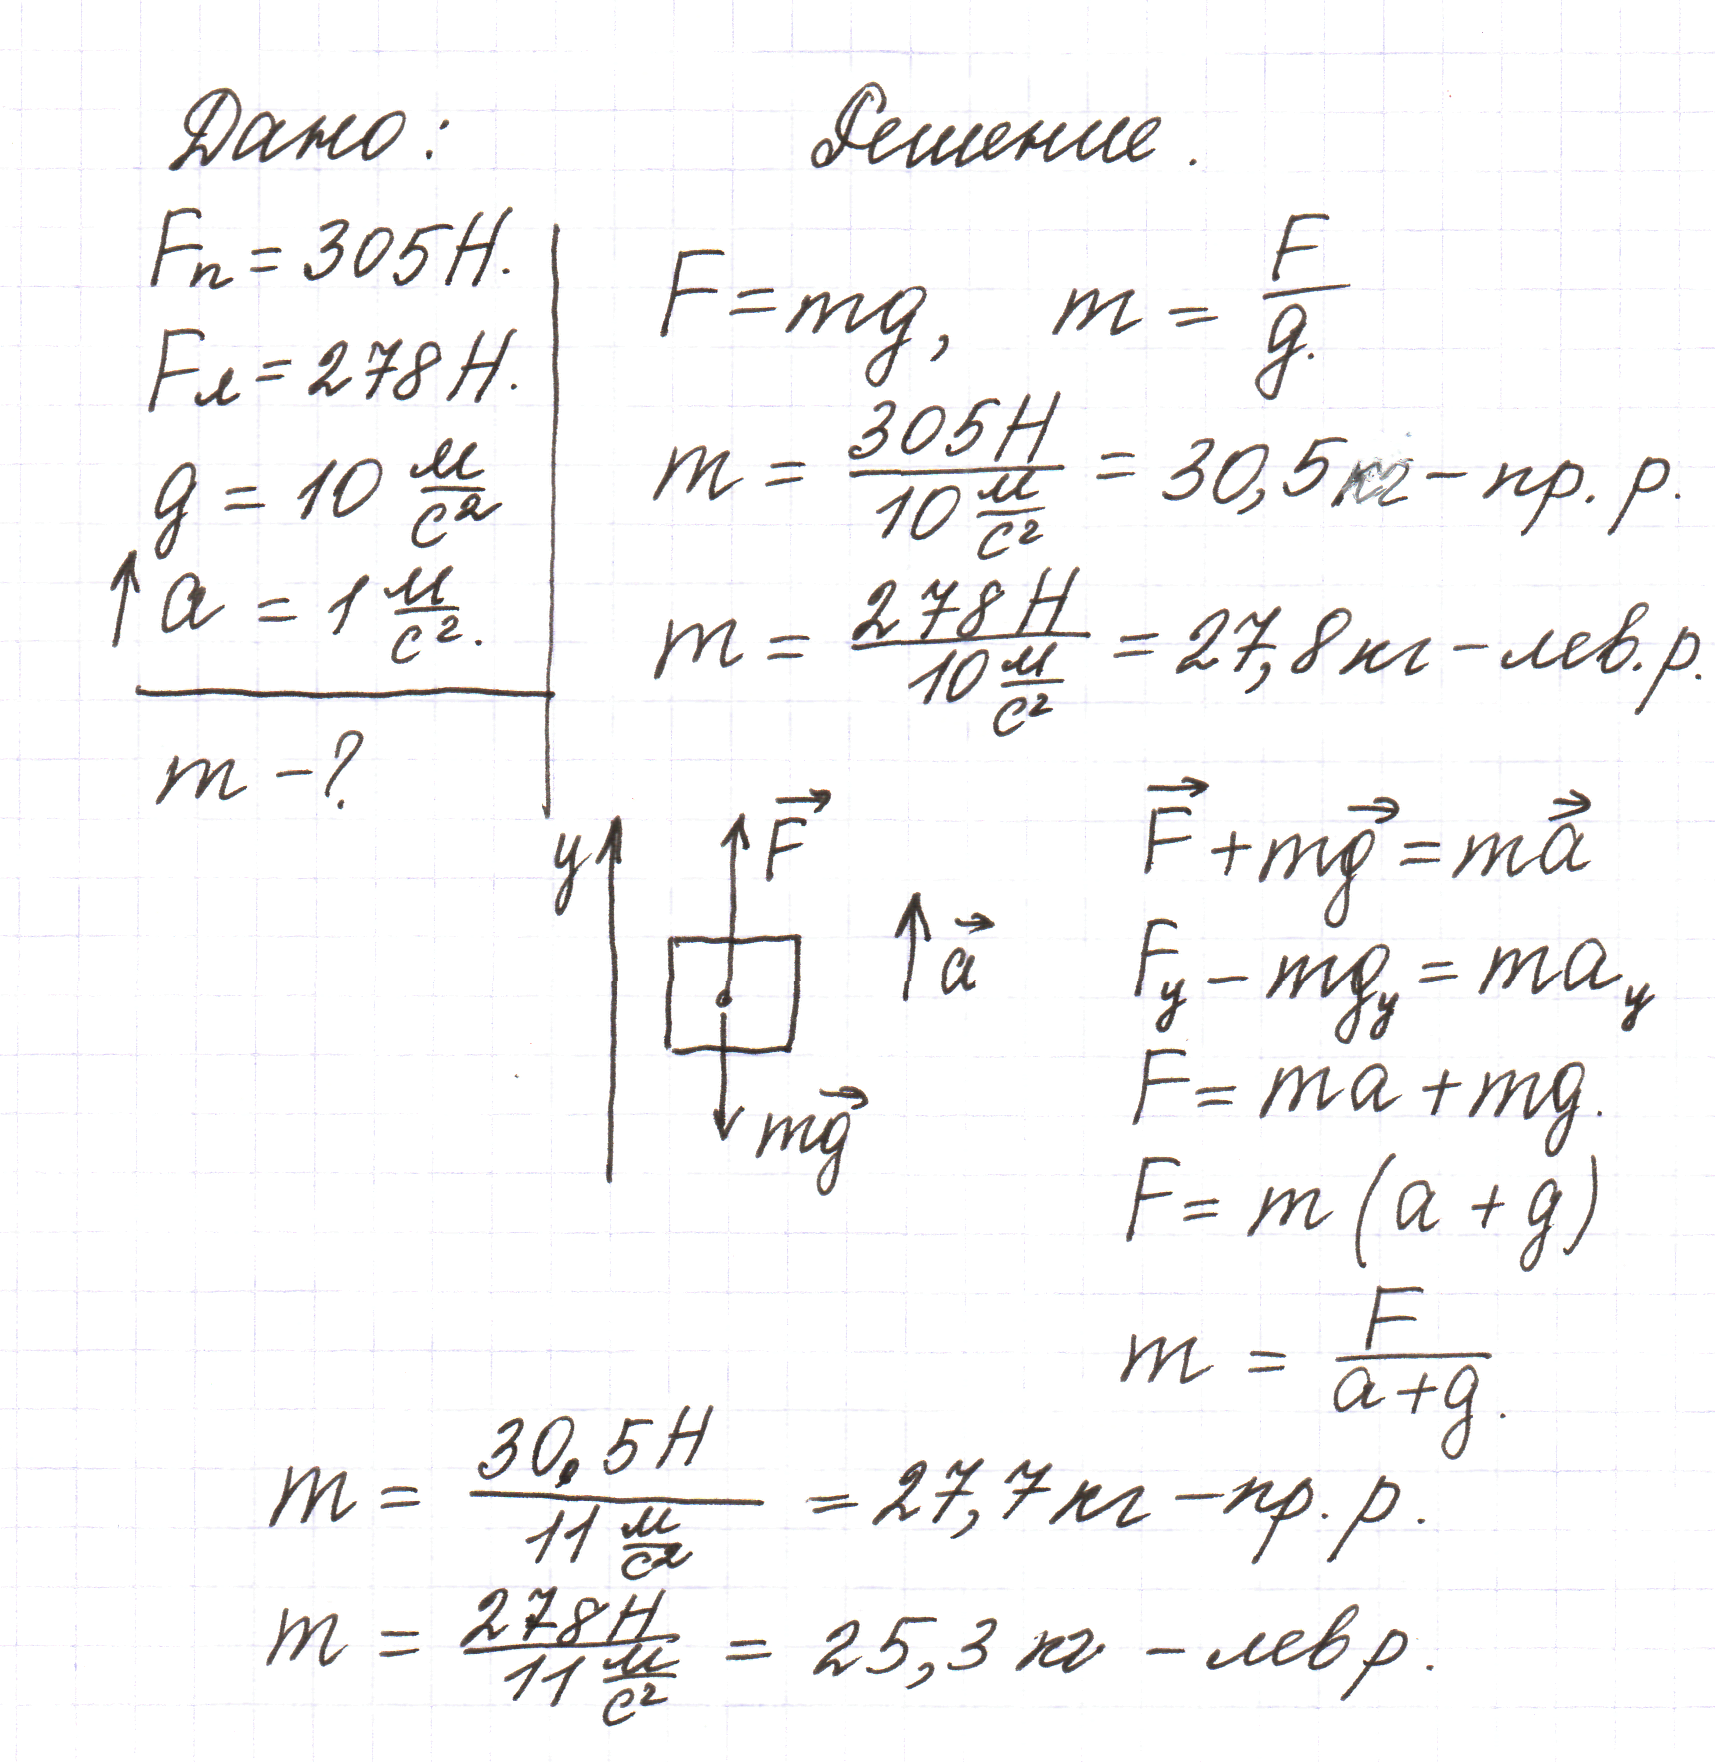 Дано:
Решение.
Fп = 305 Н.
Fл = 278 Н.
g = 10 м/с²
↑ a = 1 м/с².
m - ?
F = mg, m = F/g.
m = 305 Н / 10 м/с² = 30,5 кг - пр. р.
m = 278 Н / 10 м/с² = 27,8 кг - лев. р.
y
F⃗
a⃗
mg⃗
F⃗ + mg⃗ = ma⃗
Fy - mgy = may
F = ma + mg.
F = m (a + g)
m = F/(a+g).
m = 30,5 Н / 11 м/с² = 27,7 кг - пр. р.
m = 278 Н / 11 м/с² = 25,3 кг - лев р.